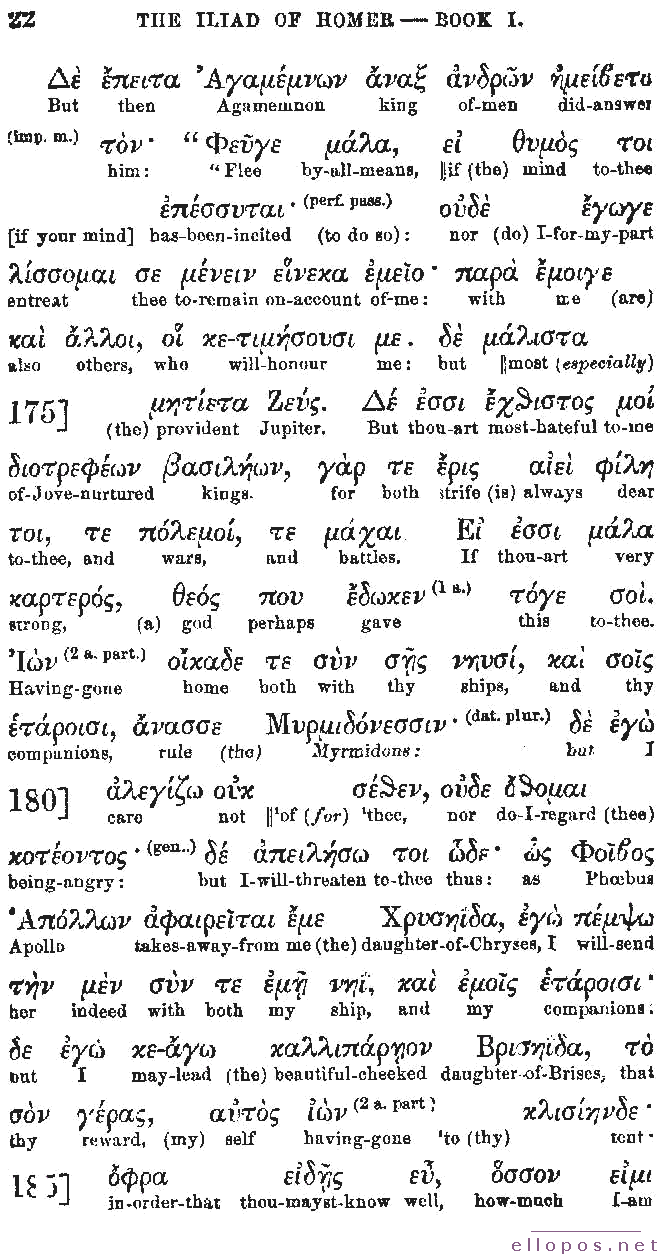 22 THE ILIAD OF HOMER — BOOK I.
Δὲ ἔπειτα Ἀγαμέμνων ἄναξ ἀνδρῶν ἠμείβετο
But then Agamemnon king of-men did-answer
(imp. m.) τὸν· “Φεῦγε μάλα, εἰ θυμὸς τοι
him: “Flee by-all-means, ‖if (the) mind to-thee
ἐπέσσυται· (perf. pass.) οὐδὲ ἔγωγε
[if your mind] has-been-incited (to do so): nor (do) I-for-my-part
λίσσομαι σε μένειν εἵνεκα ἐμεῖο· παρὰ ἔμοιγε
entreat thee to-remain on-account of-me: with me (are)
καὶ ἄλλοι, οἵ κε-τιμήσουσι με. δὲ μάλιστα
also others, who will-honour me: but ‖most (especially)
175] μητίετα Ζεύς. Δέ ἐσσι ἔχθιστος μοί
(the) provident Jupiter. But thou-art most-hateful to-me
διοτρεφέων βασιλήων, γάρ τε ἔρις αἰεὶ φίλη
of-Jove-nurtured kings. for both strife (is) always dear
τοι, τε πόλεμοί, τε μάχαι. Εἰ ἐσσι μάλα
to-thee, and wars, and battles. If thou-art very
καρτερός, θεός που ἔδωκεν (1 a.) τόγε σοί.
strong, (a) god perhaps gave this to-thee.
Ἰὼν (2 a. part.) οἴκαδε τε σὺν σῇς νηυσί, καὶ σοῖς
Having-gone home both with thy ships, and thy
ἑτάροισι, ἄνασσε Μυρμιδόνεσσιν· (dat. plur.) δὲ ἐγὼ
companions, rule (the) Myrmidons: but I
180] ἀλεγίζω οὐκ σέθεν, οὐδε ὄθομαι
care not ‖'of (for) 'thee, nor do-I-regard (thee)
κοτέοντος· (gen..) δέ ἀπειλήσω τοι ὧδε· ὡς Φοῖβος
being-angry: but I-will-threaten to-thee thus: as Phœbus
Ἀπόλλων ἀφαιρεῖται ἔμε Χρυσηΐδα, ἐγὼ πέμψω
Apollo takes-away-from me (the) daughter-of-Chryses, I will-send
τὴν μὲν σύν τε ἐμῇ νηΐ, καὶ ἐμοῖς ἑτάροισι·
her indeed with both my ship, and my companions:
δε ἐγὼ κε-ἄγω καλλιπάρῃον Βρισηΐδα, τὸ
but I may-lead (the) beautiful-cheeked daughter-of-Brises, that
σὸν γέρας, αὐτὸς ἰὼν (2 a. part) κλισίηνδε·
thy reward, (my) self having-gone 'to (thy) tent·
185] ὄφρα εἰδῇς εὖ, ὅσσον εἰμι
in-order-that thou-mayst-know well, how-much I-am
ellopos.net